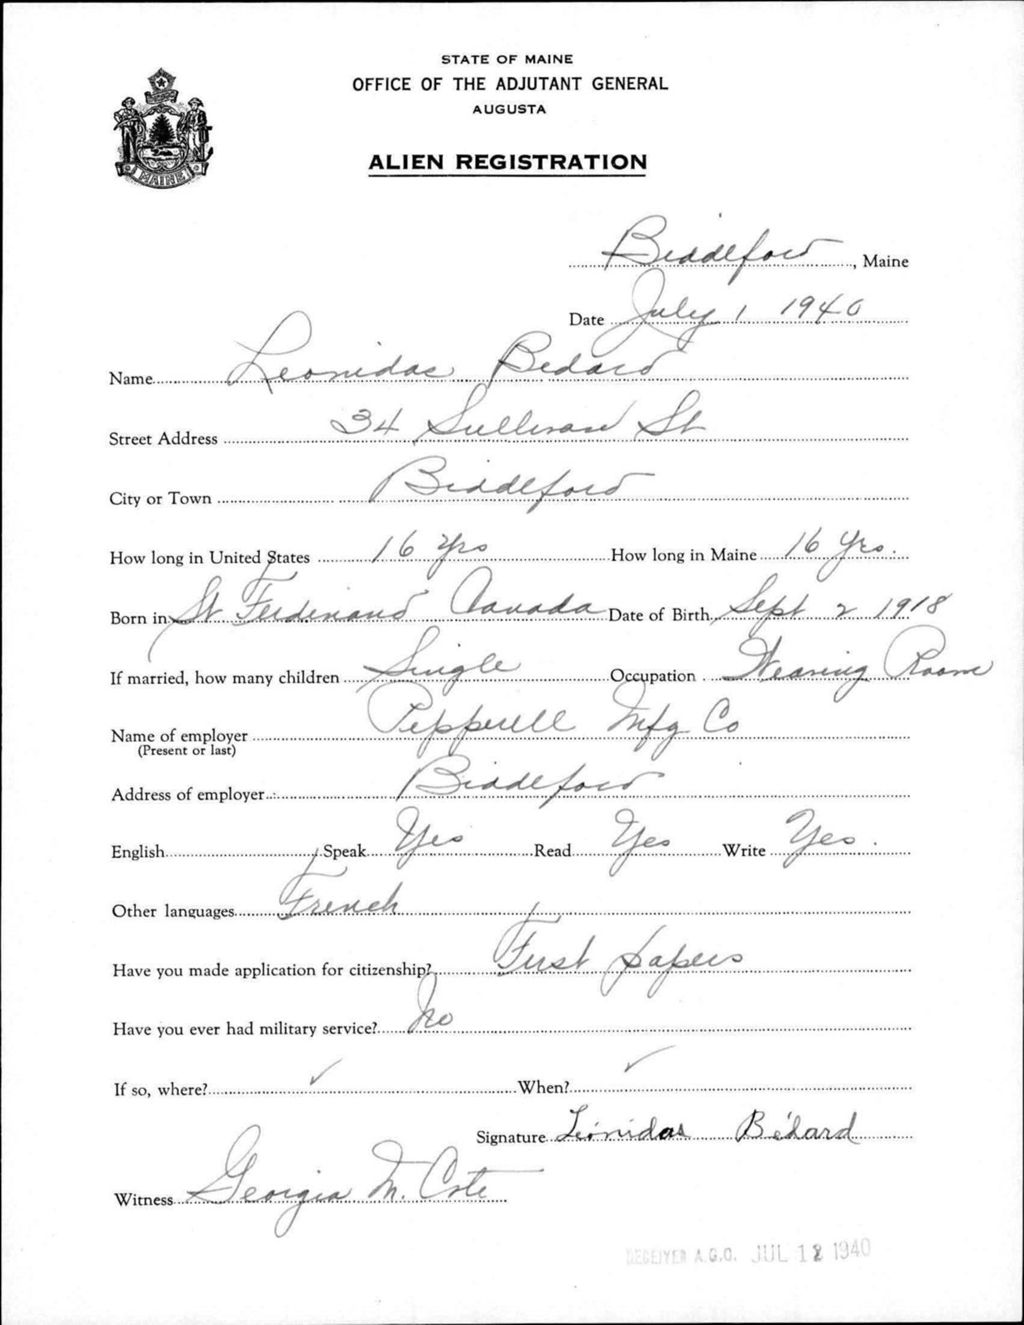 STATE OF MAINE
OFFICE OF THE ADJUTANT GENERAL
AUGUSTA
MAINE
ALIEN REGISTRATION
Biddeford, Maine
Date July 1 1940
Name Leonidas Bedard
Street Address 34 Sullivan St
City or Town Biddeford
How long in United States 16 Yrs How long in Maine 16 Yrs.
Born in St Ferdinand Canada Date of Birth Sept 2 1918
If married, how many children Single Occupation Weaving Room
Name of employer Pepperell Mfg Co
(Present or last)
Address of employer Biddeford
English Speak Yes Read Yes Write Yes.
Other languages French
Have you made application for citizenship? First papers
Have you ever had military service? No
If so, where? ✓ When? ✓
Signature Léonidas Bédard
Witness Georgia M. Cote
A.G.O. JUL 12 1940